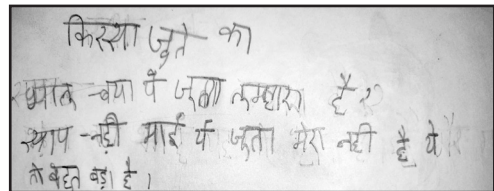 किस्सा जूते का
श्याल - क्या ये जूता तुम्हारा है ?
श्याप - नही भाई ये जूता मेरा नही है ये
तो बहुत बड़ा है ।